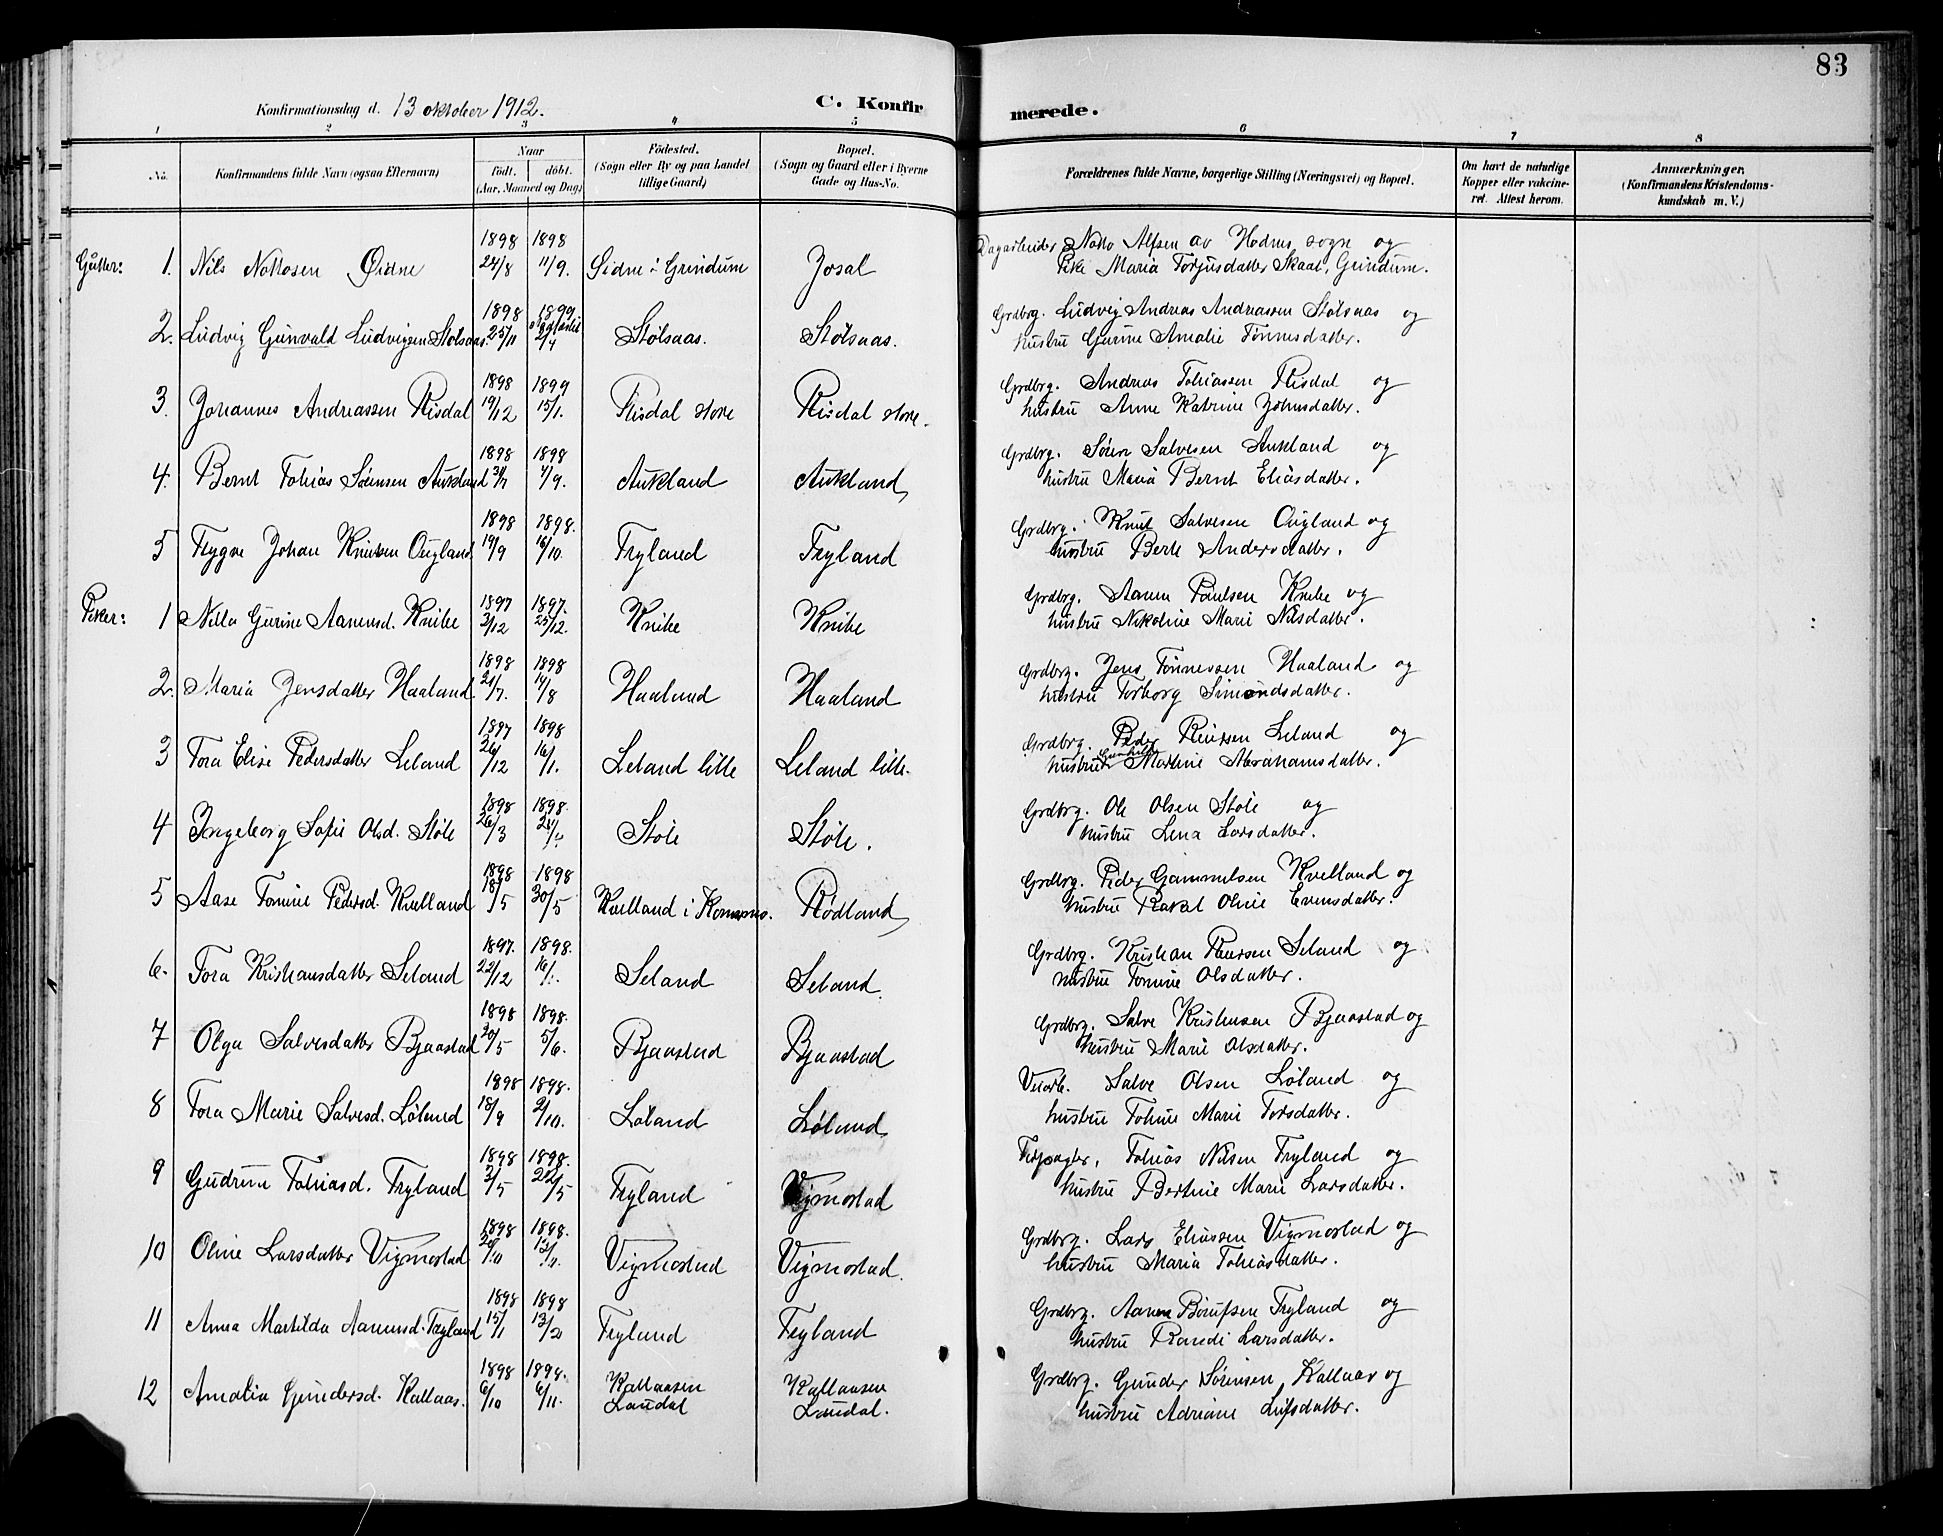 83
Konfirmationsdag d. 13 oktober 1912.
C. Konfirmerede.
1 2 3 4 5 6 7 8
No. Konfirmandens fulde Navn (ogsaa Efternavn)
Naar
födt. döbt.
(Aar, Maaned og Dag)
Födested.
(Sogn eller By og paa Landet
tillige Gaard)
Bopæl.
(Sogn og Gaard eller i Byerne
Gade og Hus-No.
Forældrenes fulde Navne, borgerlige Stilling (Næringsvei) og Bopæl.
Om havt de naturlige
Kopper eller vakcine-
ret. Attest herom.
Anmærkninger.
(Konfirmandens Kristendoms-
kundskab m. V.)
Gutter: 1. Nils Nottosen Eidne 1898 24/8 1898 11/9. Eidne i Grindum Josal
Dagarbeider Notto Alfsen av Hodnes sogn og
Pike Maria Torjusdatter Skaat, Grindum.
2. Ludvig Gunvald Ludvigsen Stolsaas. 1898 25/11 1899 2/4 Stolsaas. Stolsaas.
Grdbrg. Ludvig Andreas Andreassen Stolsaas og
hustru Gurine Amalie Tønnesdatter.
3. Johannes Andreassen Risdal 1898 19/12 1899 15/1. Risdal store Risdal store.
Grdbrg. Andreas Tobiassen Risdal og
hustru Anne Katrine Johnsdatter.
4. Bernt Tobias Sørensen Aukland 1898 31/7 1898 4/9. Aukland Aukland
Grdbrg. Søren Salvesen Aukland og
hustru Maria Bernt Eliasdatter.
5 Trygve Johan Knutsen Ougland 1898 19/9 1898. 16/10. Tryland Tryland
Grdbrg. Knut Salvesen Ougland og
hustru Berte Andersdatter.
Piker: 1 Nilla Gurine Aanensd. Knibe 1897 3/12 1897. 25/12. Knibe Knibe
Grdbrg. Aanen Paulsen Knibe og
hustru Nikoline Marie Nilsdatter.
2. Maria Jensdatter Haaland 1898 21/7. 1898 14/8 Haaland Haaland
Grdbrg. Jens Tønnessen Haaland og
hustru Torborg Simondsdatter.
3 Tora Elise Pedersdatter Leland 1897 26/12 1898 16/1. Leland lille Leland lille.
Grdbrg. Peder Leland og
hustru Gunhild Martine Abrahamsdatter.
4 Ingeborg Sofie Olsd. Støle 1898 26/3 1898. 24/ Støle Støle.
Grdbrg. Ole Olsen Støle og
hustru Lena Larsdatter.
5 Aase Tomine Pedersd. Kvelland 1898 18/5 1898 30/5 Kvelland i Konsmo. Rødland
Grdbrg. Peder Gammelsen Kvelland og
hustru Rakel Oline Evensdatter.
6. Tora Kristiansdatter Seland 1897. 22/12 1898. 16/1. Seland Seland.
Grdbrg. Kristian Seland og
hustru Tomine Olsdatter.
7 Olga Salvesdatter Bjaastad 1898 20/5 1898. 5/6. Bjaastad Bjaastad
Grdbrg. Salve Kristensen Bjaastad og
hustru Marie Olsdatter.
8 Tora Marie Salvesd. Løland 1898 18/9 1898. 2/10. Løland Løland
Salve Olsen Løland og
hustru Tobine Marie Torsdatter.
9 Gudrun Tobiasd. Tryland 1898 2/5 1898. 22/5 Tryland Vigmostad
Tobias Nilsen Tryland og
hustru Bertine Marie Larsdatter.
10 Oline Larsdatter Vigmostad 1898 1898. Vigmostad Vigmostad.
Grdbrg. Lars Eliassen Vigmostad og
hustru Maria Tobiasdatter.
11 Anna Martilda Aanensd. Tryland 1898 15/1 1898 13/2 Tryland Tryland
Grdbrg. Aanen Børufsen Tryland og
hustru Randi Larsdatter.
12 Amalia Gundersd. Kallaas. 1898 6/10 1898. 6/11. Kallaasen Laudal Kallaasen Laudal.
Grdbrg. Gunder Sørensen Kallaas og
hustru Adriane Leifsdatter.